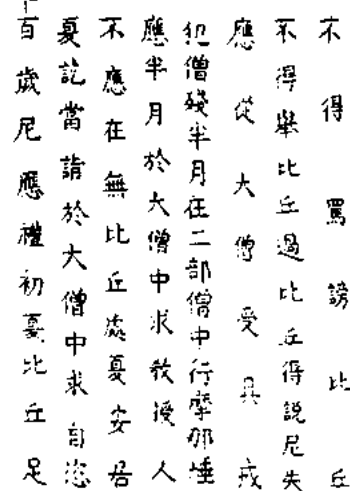 不得罵謗比丘
不得舉比丘過比丘得說尼失
應從大僧受具戒
犯僧殘半月在二部僧中行摩那埵
應半月於大僧中求教授人
不應在無比丘處夏安居
夏訖當詣於大僧中求自恣
百歲尼應禮初夏比丘足